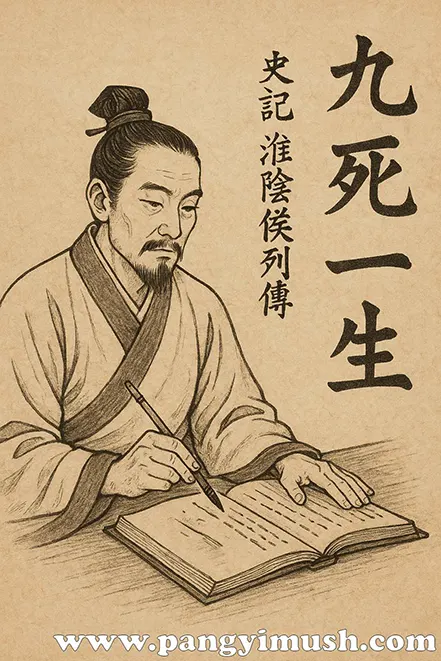 九死一生
史記 淮陰侯列傳
www.pangyimush.com